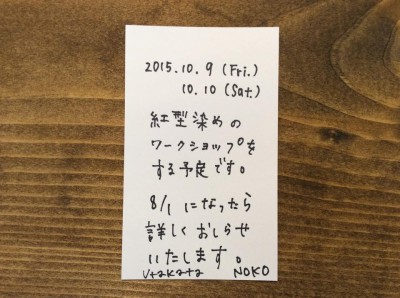 2015.10.9 (Fri.)
10.10 (Sat.)
紅型染めの
ワークショップを
する予定です。
8/1 になったら
詳しくおしらせ
いたします。
utakata NOKO